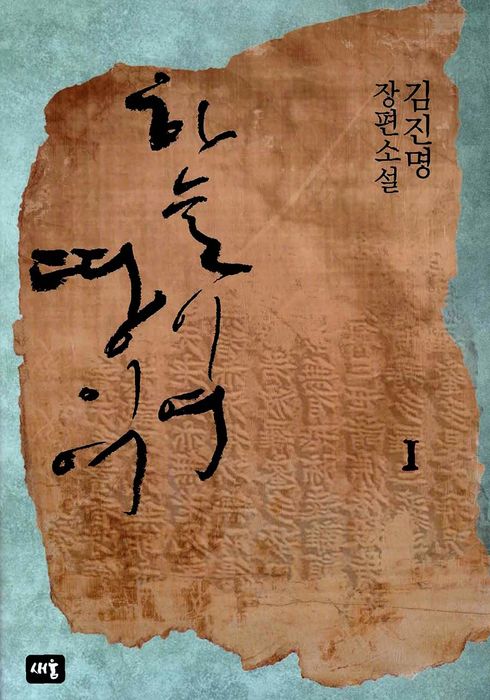 김진명
장편소설
하늘이여
땅이여
I
새움